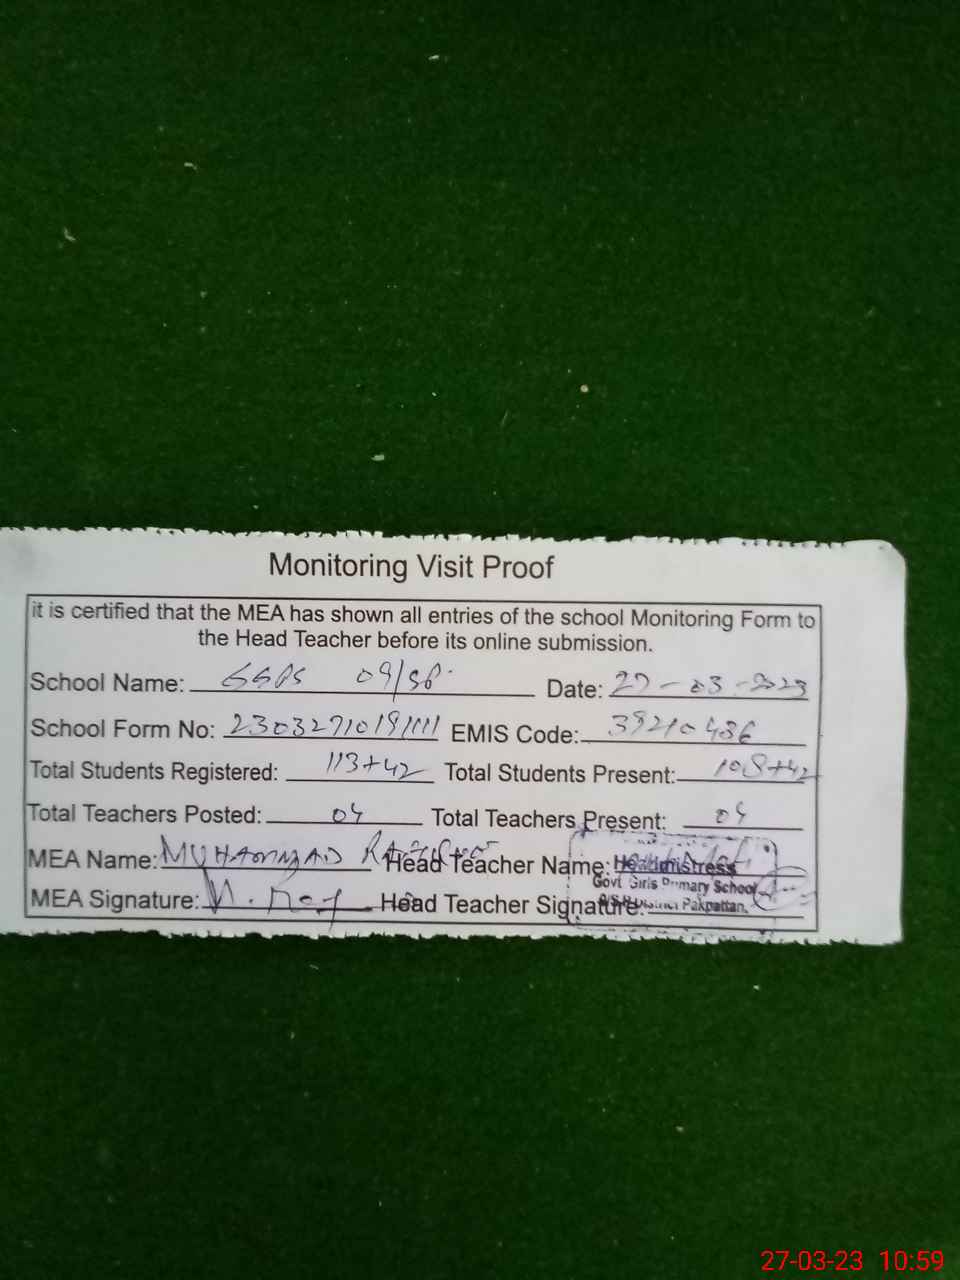 Monitoring Visit Proof
it is certified that the MEA has shown all entries of the school Monitoring Form to
the Head Teacher before its online submission.
School Name: GGPS 09/SP Date: 27-03-2023
School Form No: 23032710191111 EMIS Code: 39210486
Total Students Registered: 113+42 Total Students Present: 108+42
Total Teachers Posted: 04 Total Teachers Present: 04
MEA Name: MUHAMMAD Head Teacher Name: Headmistress
Govt Girls Primary School
MEA Signature: Head Teacher Signature: District Pakpattan.
27-03-23 10:59